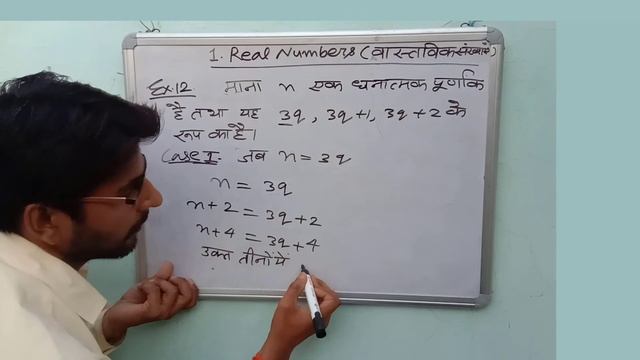 1. Real Numbers (वास्तविक संख्याएँ)
Ex.12 माना n एक धनात्मक पूर्णांक
है तथा यह 3q, 3q+1, 3q+2 के
रूप का है।
Case I. जब n = 3q
n = 3q
n+2 = 3q+2
n+4 = 3q+4
उक्त तीनों में